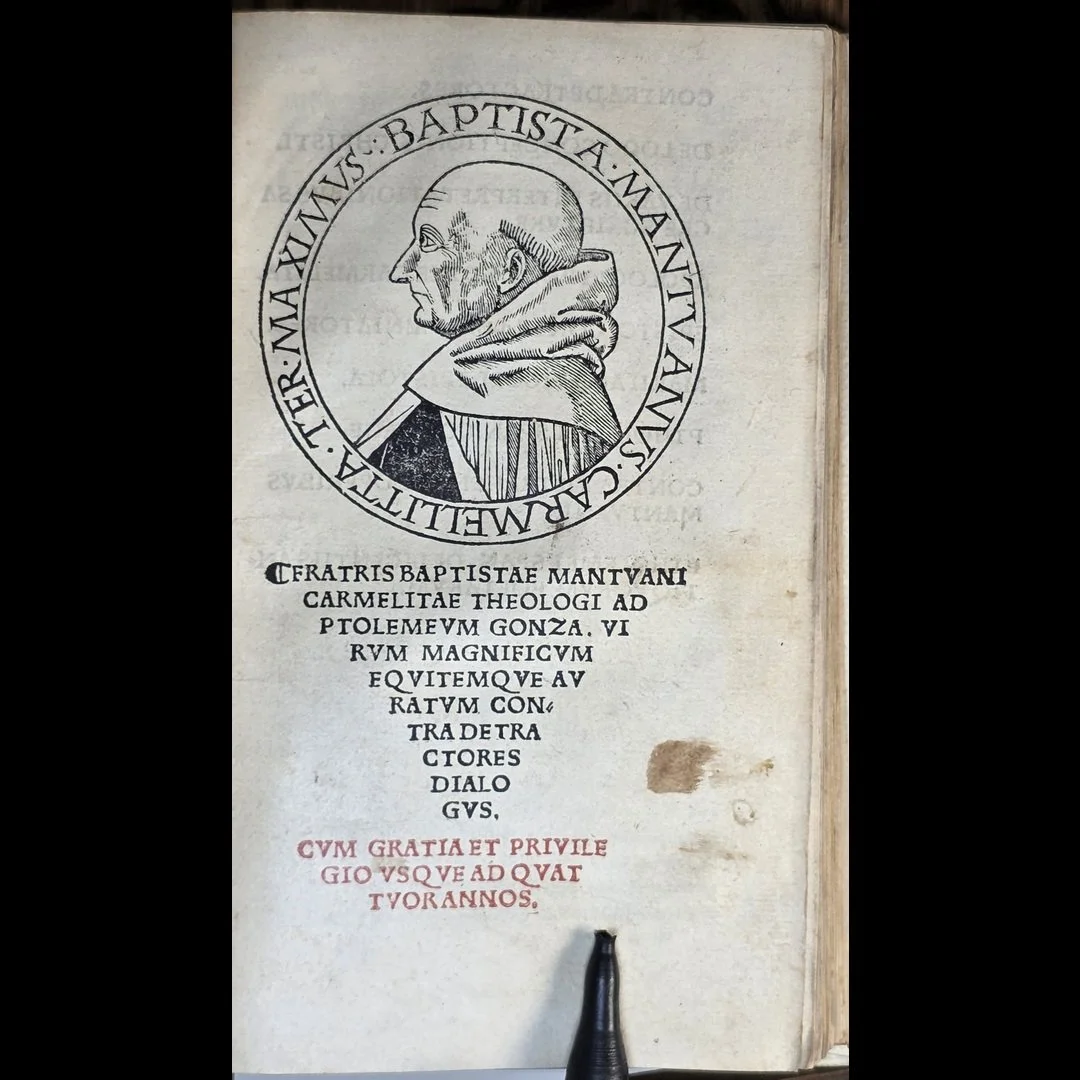 BAPTISTA · MANTVANVS · CARMELLITTA · TER · MAXIMVS
¶FRATRIS BAPTISTAE MANTVANI
CARMELITAE THEOLOGI AD
PTOLEMEVM GONZA. VI
RVM MAGNIFICVM
EQVITEMQVE AV
RATVM CON⸗
TRA DETRA
CTORES
DIALO
GVS.
CVM GRATIA ET PRIVILE
GIO VSQVE AD QVAT
TVOR ANNOS.